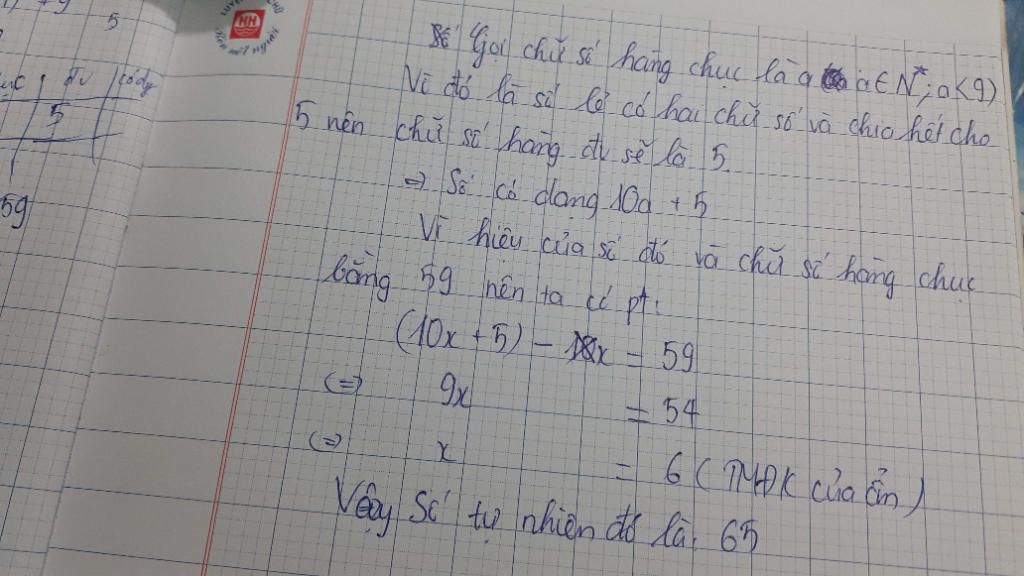 5
HH
Gọi chữ số hàng chục là a a∈N*; a<9)
Vì đó là số lẻ có hai chữ số và chia hết cho
5 nên chữ số hàng đv sẽ là 5.
=> Số có dạng 10a + 5
Vì hiệu của số đó và chữ số hàng chục
bằng 59 nên ta có pt:
(10x + 5) - x = 59
(=) 9x = 54
(=) x = 6 (TMĐK của ẩn)
Vậy Số tự nhiên đó là: 65
đv
5
59